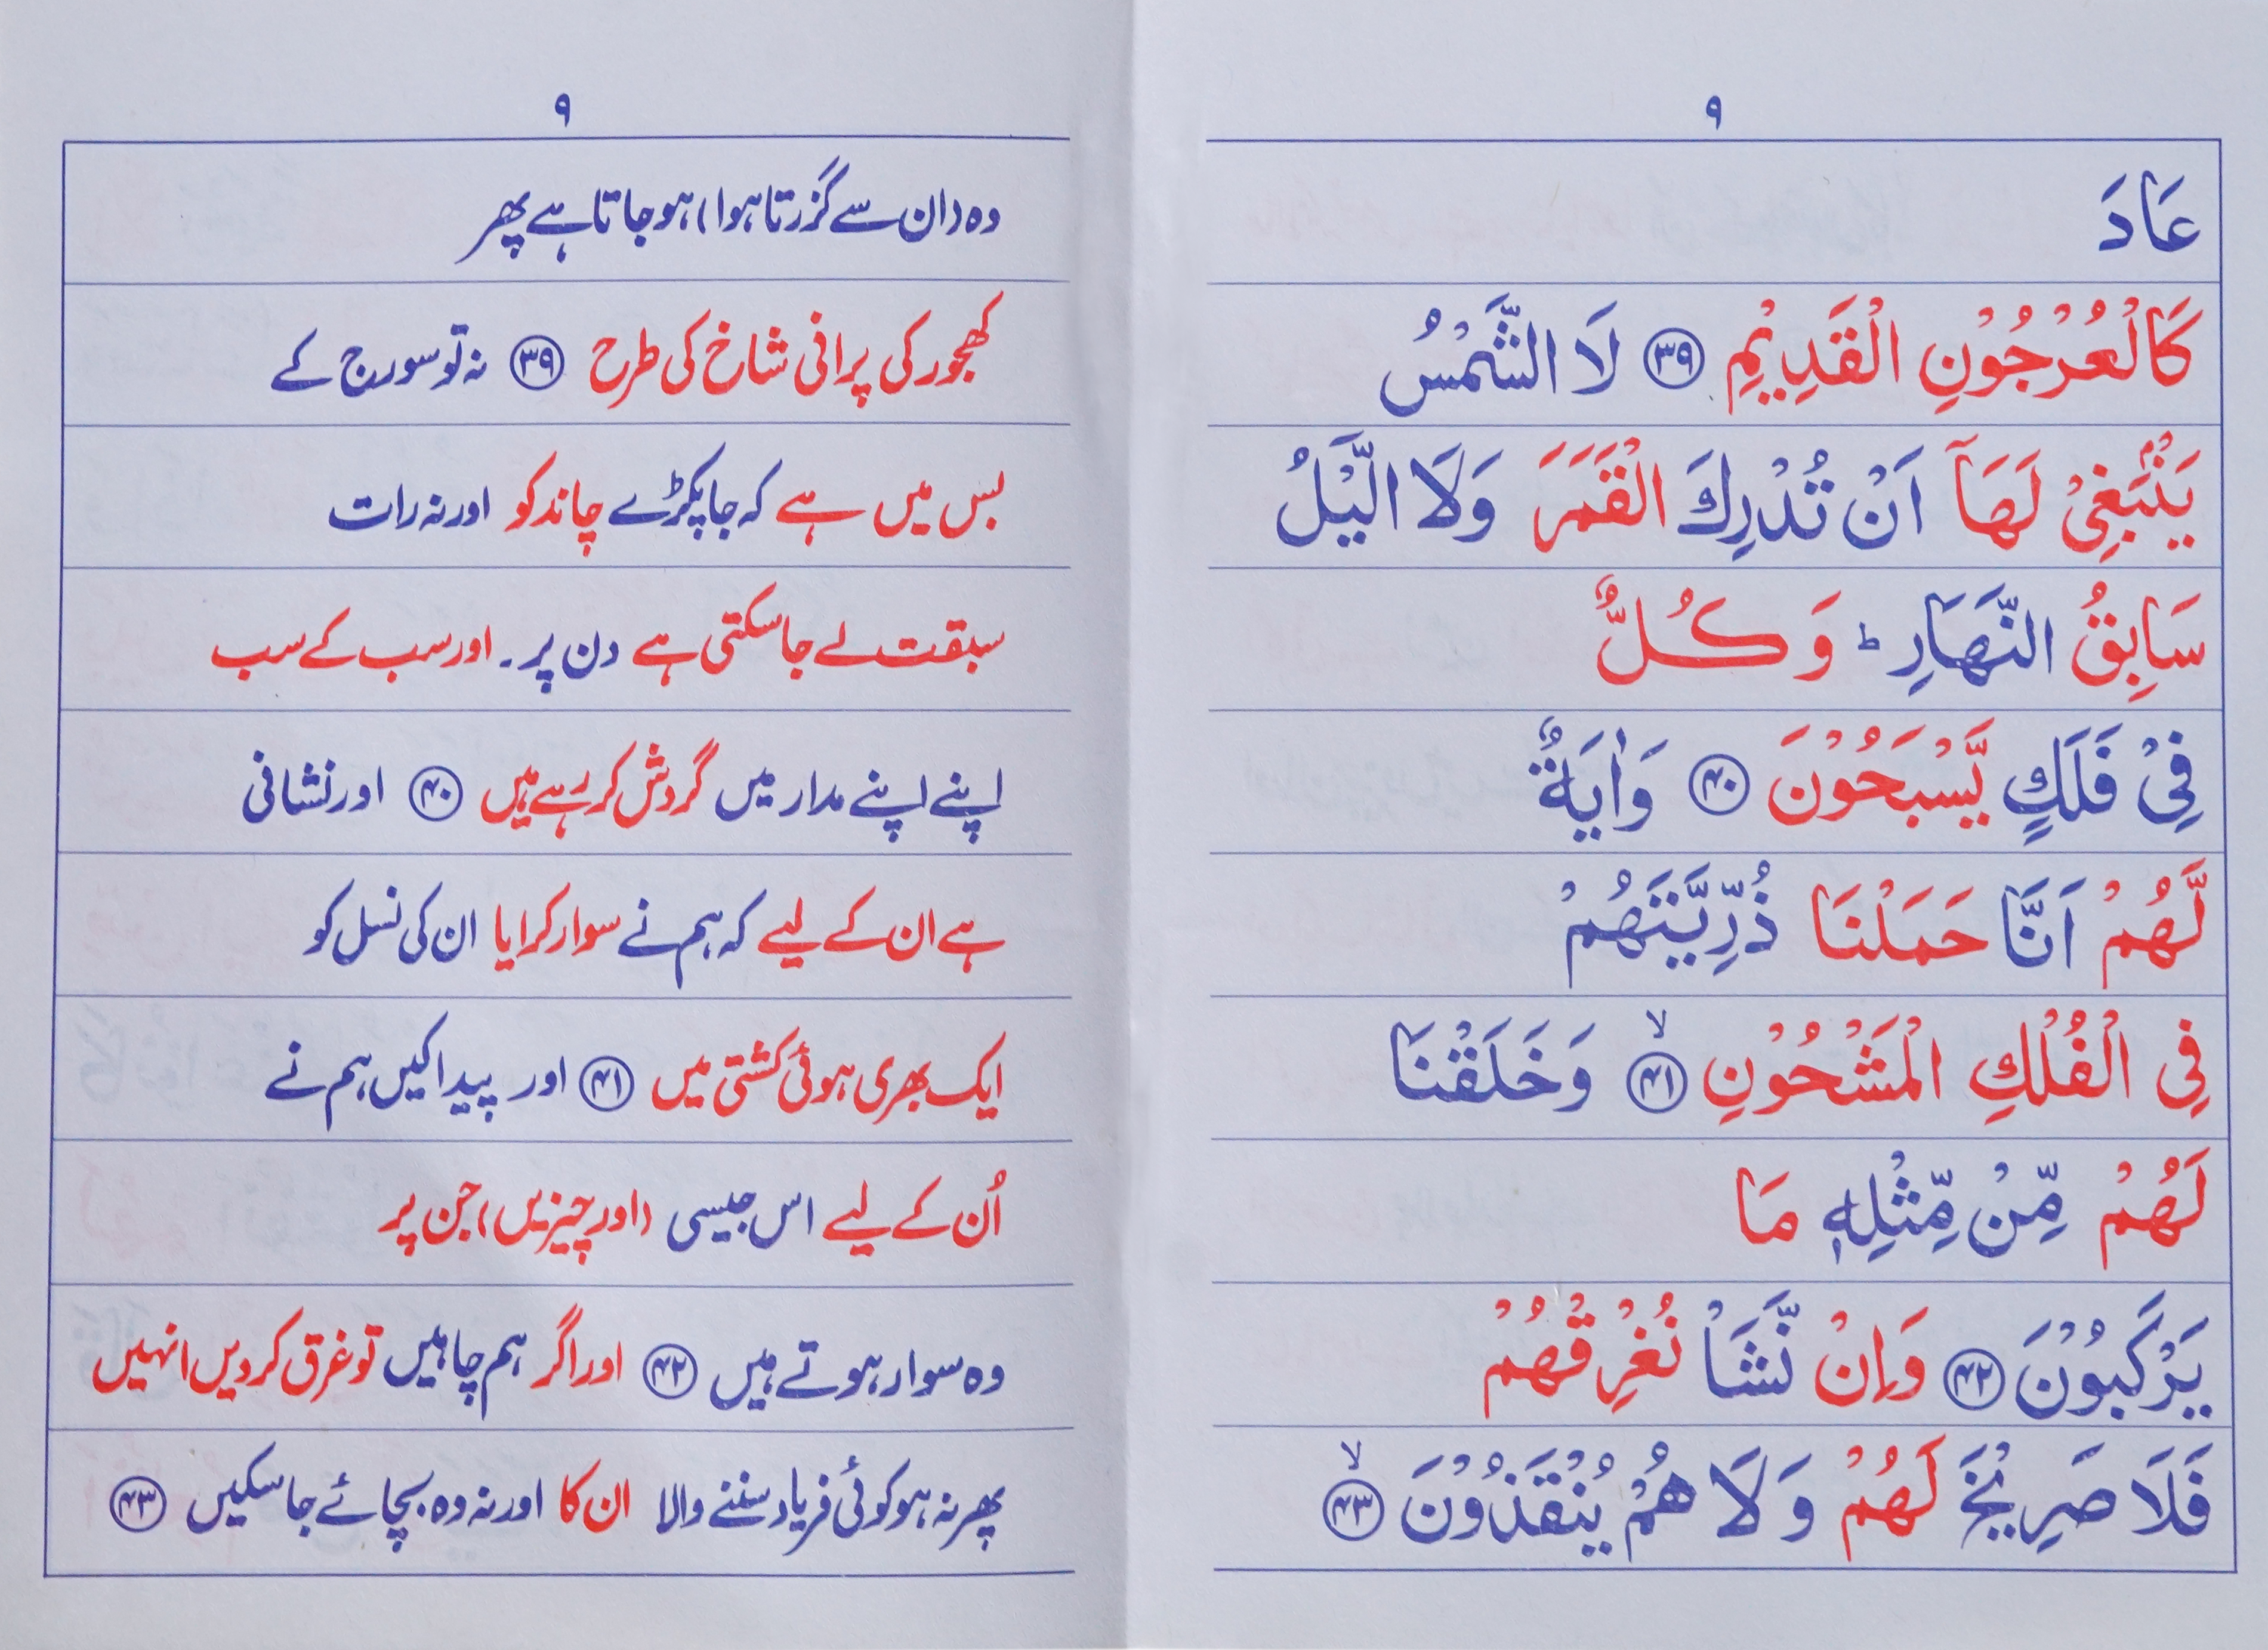 ٩
عَادَ
كَالْعُرْجُوْنِ الْقَدِيْمِ ٣٩ لَا الشَّمْسُ
يَنْۢبَغِيْ لَهَآ اَنْ تُدْرِكَ الْقَمَرَ وَلَا الَّيْلُ
سَابِقُ النَّهَارِ ؕ وَكُلٌّ
فِيْ فَلَكٍ يَّسْبَحُوْنَ ۴۰ وَاٰيَةٌ
لَّهُمْ اَنَّا حَمَلْنَا ذُرِّيَّتَهُمْ
فِي الْفُلْكِ الْمَشْحُوْنِ ۴۱ ۙ وَخَلَقْنَا
لَهُمْ مِّنْ مِّثْلِهٖ مَا
يَرْكَبُوْنَ ۴۲ وَاِنْ نَّشَاْ نُغْرِقْهُمْ
فَلَا صَرِيْخَ لَهُمْ وَلَا هُمْ يُنْقَذُوْنَ ۴۳ ۙ
٩
وہ (ان سے گزرتا ہوا) ہو جاتا ہے پھر
کھجور کی پرانی شاخ کی طرح ۳۹ نہ تو سورج کے
بس میں ہے کہ جا پکڑے چاند کو اور نہ رات
سبقت لے جا سکتی ہے دن پر۔ اور سب کے سب
اپنے اپنے مدار میں گردش کر رہے ہیں ۴۰ اور نشانی
ہے ان کے لیے کہ ہم نے سوار کرایا ان کی نسل کو
ایک بھری ہوئی کشتی میں ۴۱ اور پیدا کیں ہم نے
اُن کے لیے اس جیسی (اور چیزیں) جن پر
وہ سوار ہوتے ہیں ۴۲ اور اگر ہم چاہیں تو غرق کر دیں انہیں
پھر نہ ہو کوئی فریاد سننے والا ان کا اور نہ وہ بچائے جا سکیں ۴۳